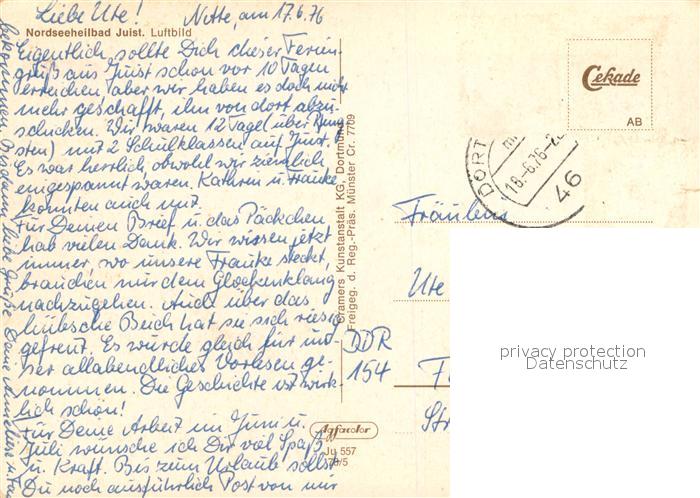 Liebe Ute! Nette, am 17.6.76
Nordseeheilbad Juist. Luftbild
Eigentlich sollte Dich dieser Ferien-
gruß aus Juist schon vor 10 Tagen
erreichen aber wir haben es doch nicht
mehr geschafft, ihn von dort abzu-
schicken. Wir waren 12 Tage (über Pfing
sten) mit 2 Schulklassen auf Juist.
Es war herrlich, obwohl wir ziemlich
eingespannt waren. Kathrin u. Frauke
konnten auch mit.
Für Deinen Brief u. das Päckchen
hab vielen Dank. Wir wissen jetzt
immer, wo unsere Frauke steckt,
brauchen nur dem Glockenklang
nachzugehen. Auch über das
hübsche Buch hat sie sich riesig
gefreut. Es wurde gleich für un-
ser allabendliches Vorlesen ge-
nommen. Die Geschichte ist wirk-
lich schön!
Für Deine Arbeit im Juni u.
Juli wünsche ich Dir viel Spaß
u. Kraft. Bis zum Urlaub sollst
Du noch ausführlich Post von mir
bekommen. Bis dann liebe Grüße Deine Anneliese u. Fa
Cramers Kunstanstalt KG, Dortmund
Freigeg. d. Reg.-Präs. Münster Cr. 7709
Cekade
AB
DORT
18.-6.76-2
46
Fräulein
Ute
DDR
154 F
Str
Agfacolor
Ju 557
/5
privacy protection
Datenschutz